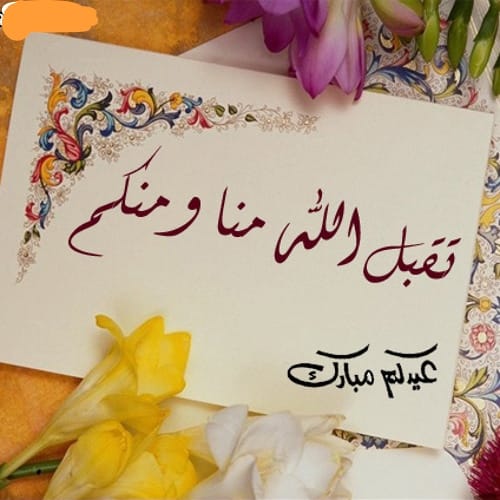 تقبل الله منا ومنكم
عيدكم مبارك